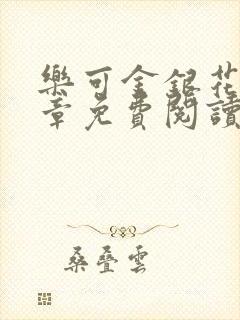 樂可金銀花
章免費閱讀
桑疊雲